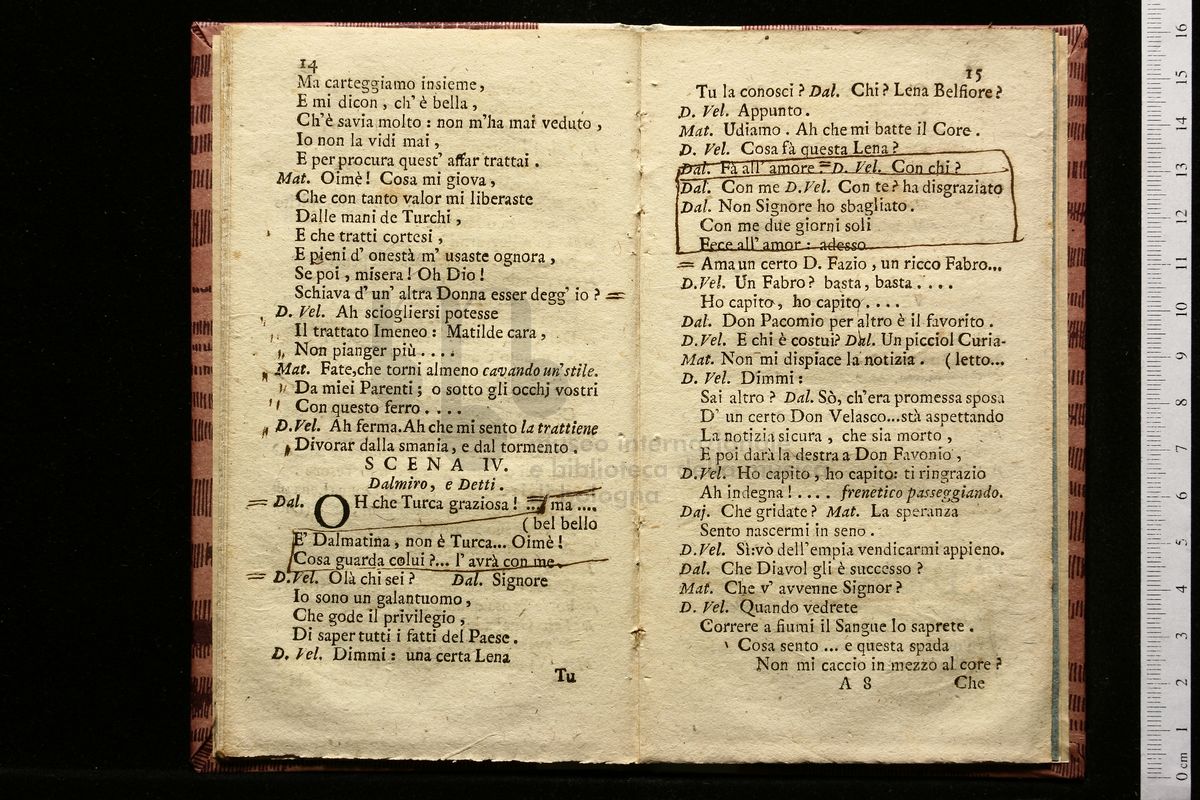 14
Ma carteggiamo insieme,
E mi dicon, ch' è bella,
Ch'è savia molto : non m'ha mai veduto,
Io non la vidi mai,
E per procura quest' affar trattai.
Mat. Oimè! Cosa mi giova,
Che con tanto valor mi liberaste
Dalle mani de Turchi,
E che tratti cortesi,
E pieni d' onestà m' usaste ognora,
Se poi, misera! Oh Dio!
Schiava d' un' altra Donna esser degg' io? =
D. Vel. Ah sciogliersi potesse
Il trattato Imeneo : Matilde cara,
Non pianger più ....
Mat. Fate, che torni almeno cavando un' stile.
Da miei Parenti; o sotto gli occhj vostri
Con questo ferro ....
D. Vel. Ah ferma. Ah che mi sento la trattiene
Divorar dalla smania, e dal tormento.
SCENA IV.
Dalmiro, e Detti.
= Dal. OH che Turca graziosa! ... ma ....
( bel bello
E' Dalmatina, non è Turca... Oimè!
Cosa guarda colui?... l' avrà con me.
= D. Vel. Olà chi sei? Dal. Signore
Io sono un galantuomo,
Che gode il privilegio,
Di saper tutti i fatti del Paese.
D. Vel. Dimmi : una certa Lena
Tu
15
Tu la conosci? Dal. Chi? Lena Belfiore?
D. Vel. Appunto.
Mat. Udiamo. Ah che mi batte il Core.
D. Vel. Cosa fà questa Lena?
Dal. Fà all' amore = D. Vel. Con chi?
Dal. Con me D. Vel. Con te? ha disgraziato
Dal. Non Signore ho sbagliato.
Con me due giorni soli
Fece all' amor : adesso
= Ama un certo D. Fazio, un ricco Fabro...
D. Vel. Un Fabro? basta, basta ....
Ho capito, ho capito ....
Dal. Don Pacomio per altro è il favorito.
D. Vel. E chi è costui? Dal. Un picciol Curia-
Mat. Non mi dispiace la notizia. ( letto...
D. Vel. Dimmi :
Sai altro? Dal. Sò, ch'era promessa sposa
D' un certo Don Velasco...stà aspettando
La notizia sicura, che sia morto,
E poi darà la destra a Don Favonio,
D. Vel. Ho capito, ho capito: ti ringrazio
Ah indegna! .... frenetico passeggiando.
Daj. Che gridate? Mat. La speranza
Sento nascermi in seno.
D. Vel. Sì: vò dell'empia vendicarmi appieno.
Dal. Che Diavol gli è successo?
Mat. Che v' avvenne Signor?
D. Vel. Quando vedrete
Correre a fiumi il Sangue lo saprete.
Cosa sento ... e questa spada
Non mi caccio in mezzo al core?
A 8 Che